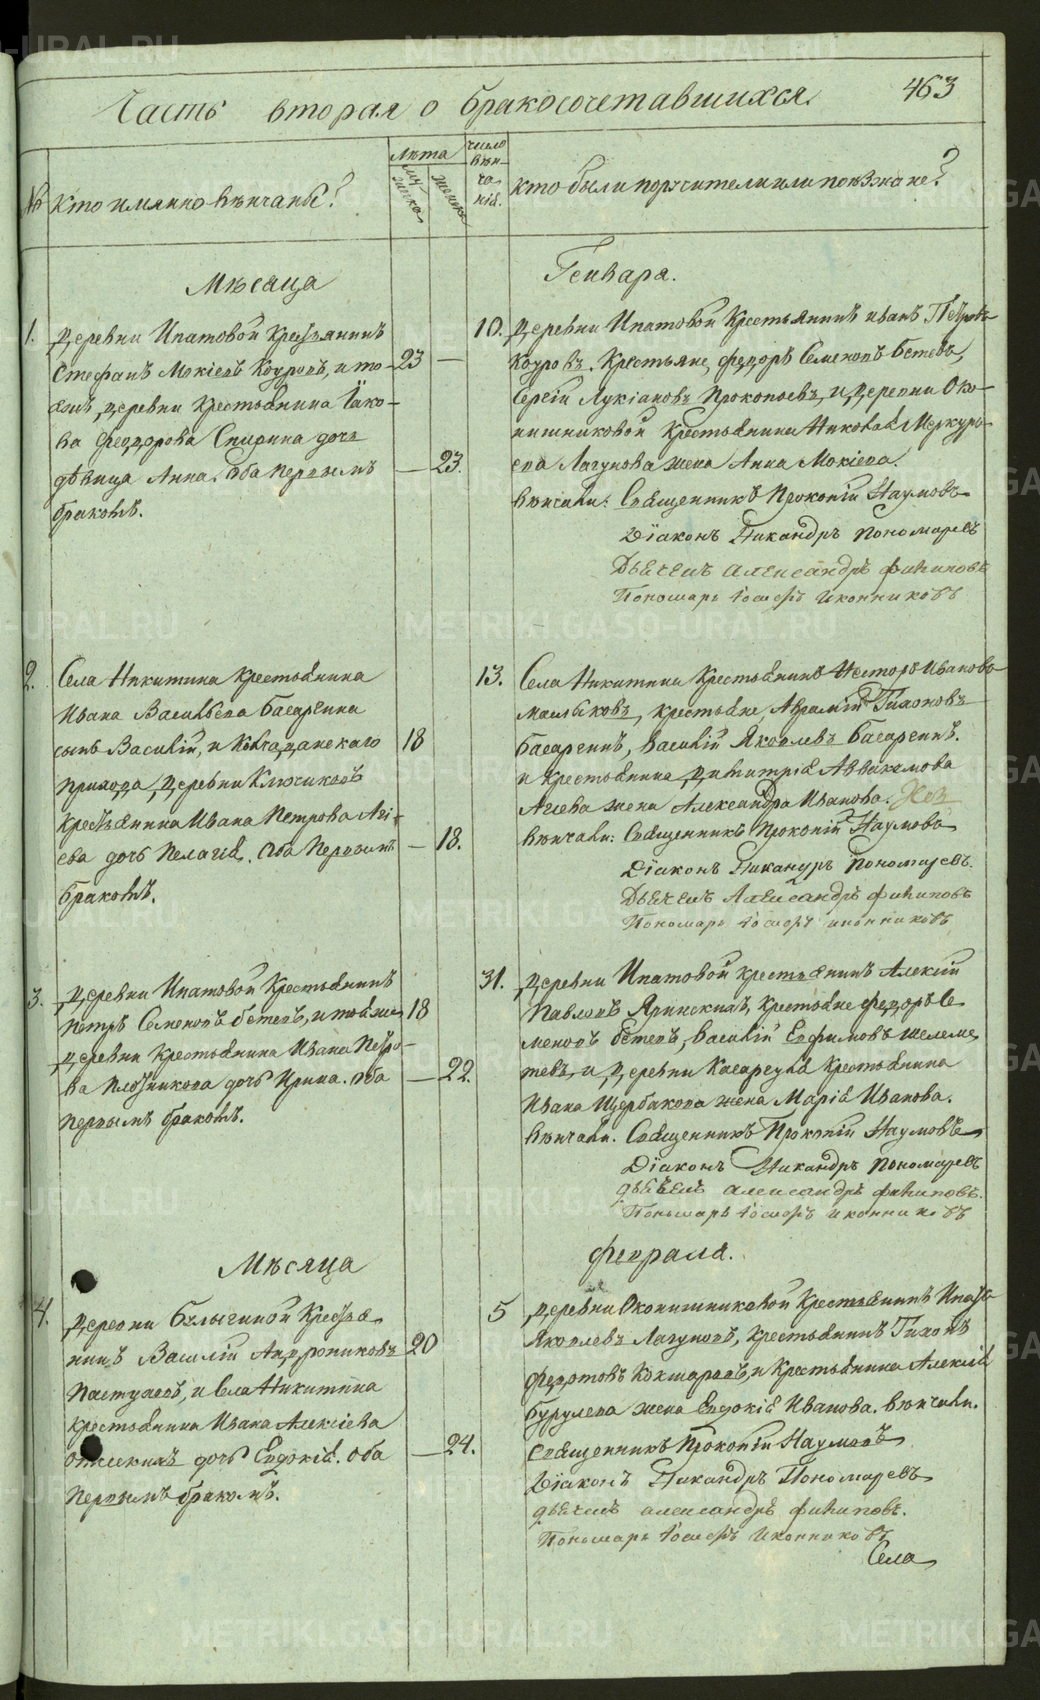 463
Часть вторая о бракосочетавшихся.
№
Кто имянно вѣнчаны?
Лѣта
мужеска
женска
число вѣнчанія.
кто были поручители или поѣзжане?
Мѣсяца
Генваря.
1.
Деревни Ипатовой Крестьянинъ
Стефанъ Мокіевъ Коуровъ, и то-
яжъ деревни Крестьянина Іако-
ва Феодорова Спирина дочь
дѣвица Анна. Оба первымъ
бракомъ.
23
23.
10.
Деревни Ипатовой Крестьянинъ Иванъ Петровъ
Коуровъ. Крестьяне, Федоръ Семеновъ Бетевъ,
Сергій Лукіановъ Прокопьевъ, и Деревни Око-
нишниковой Крестьянина Николая Меркурь-
ева Лагунова жена Анна Мокіева.
Вѣнчали: Священникъ Прокопій Наумовъ
Діаконъ Никандръ Пономаревъ
Дьячекъ Александръ Филиповъ
Пономарь Іосифъ Иконниковъ
2.
Села Никитина Крестьянина
Ивана Васильева Басаргина
сынъ Василій, и Колчаданскаго
прихода, Деревни Ключиковъ
Крестьянина Ивана Петрова Агі-
ева дочь Пелагія. Оба Первымъ
бракомъ.
18
18.
13.
Села Никитина Крестьянинъ Несторъ Ивановъ
крестьяне, Аврамій Тихоновъ
Басаргинъ, Василій Яковлевъ Басаргинъ.
и Крестьянина Димитрія Аввакумова
Агиева жена Александра Иванова.
Вѣнчали: Священникъ Прокопій Наумовъ
Діаконъ Никандръ Пономаревъ.
Дьячекъ Александръ Филиповъ
Пономарь Іосифъ Иконниковъ
3.
Деревни Ипатовой Крестьянинъ
Петръ Семеновъ Бетевъ, и тояже
Деревни Крестьянина Ивана Петро-
ва Плотникова дочь Ирина. Оба
первымъ бракомъ.
18
22.
31.
Деревни Ипатовой крестьянинъ Алексій
Павловъ Яринскихъ, Крестьяне Федоръ Се
меновъ Бетевъ, Василій Евфимовъ Шелеме
тевъ, и Деревни Касаргуля Крестьянина
Ивана Щербакова жена Марія Иванова.
Вѣнчали. Священникъ Прокопій Наумовъ
Діаконъ Никандръ Пономаревъ
дьячекъ Александръ Филиповъ.
Пономарь Іосифъ Иконниковъ
Мѣсяца
Февраля.
4.
Деревни Булыгиной Крестья
нинъ Василій Андрониковъ
Пастуховъ, и Села Никитина
крестьянина Ивана Алексіева
дочь Евдокія. Оба
Первымъ бракомъ.
20
24.
5
Деревни Оконишниковой Крестьянинъ
Яковлевъ Лагуновъ, крестьянинъ Тихонъ
Федотовъ Кокшаровъ, и Крестьянина Алексія
Бурулева жена Евдокія Иванова. Вѣнчали.
Священникъ Прокопій Наумовъ
Діаконъ Никандръ Пономаревъ
дьячекъ Александръ Филиповъ.
Пономарь Іосифъ Иконниковъ
Села